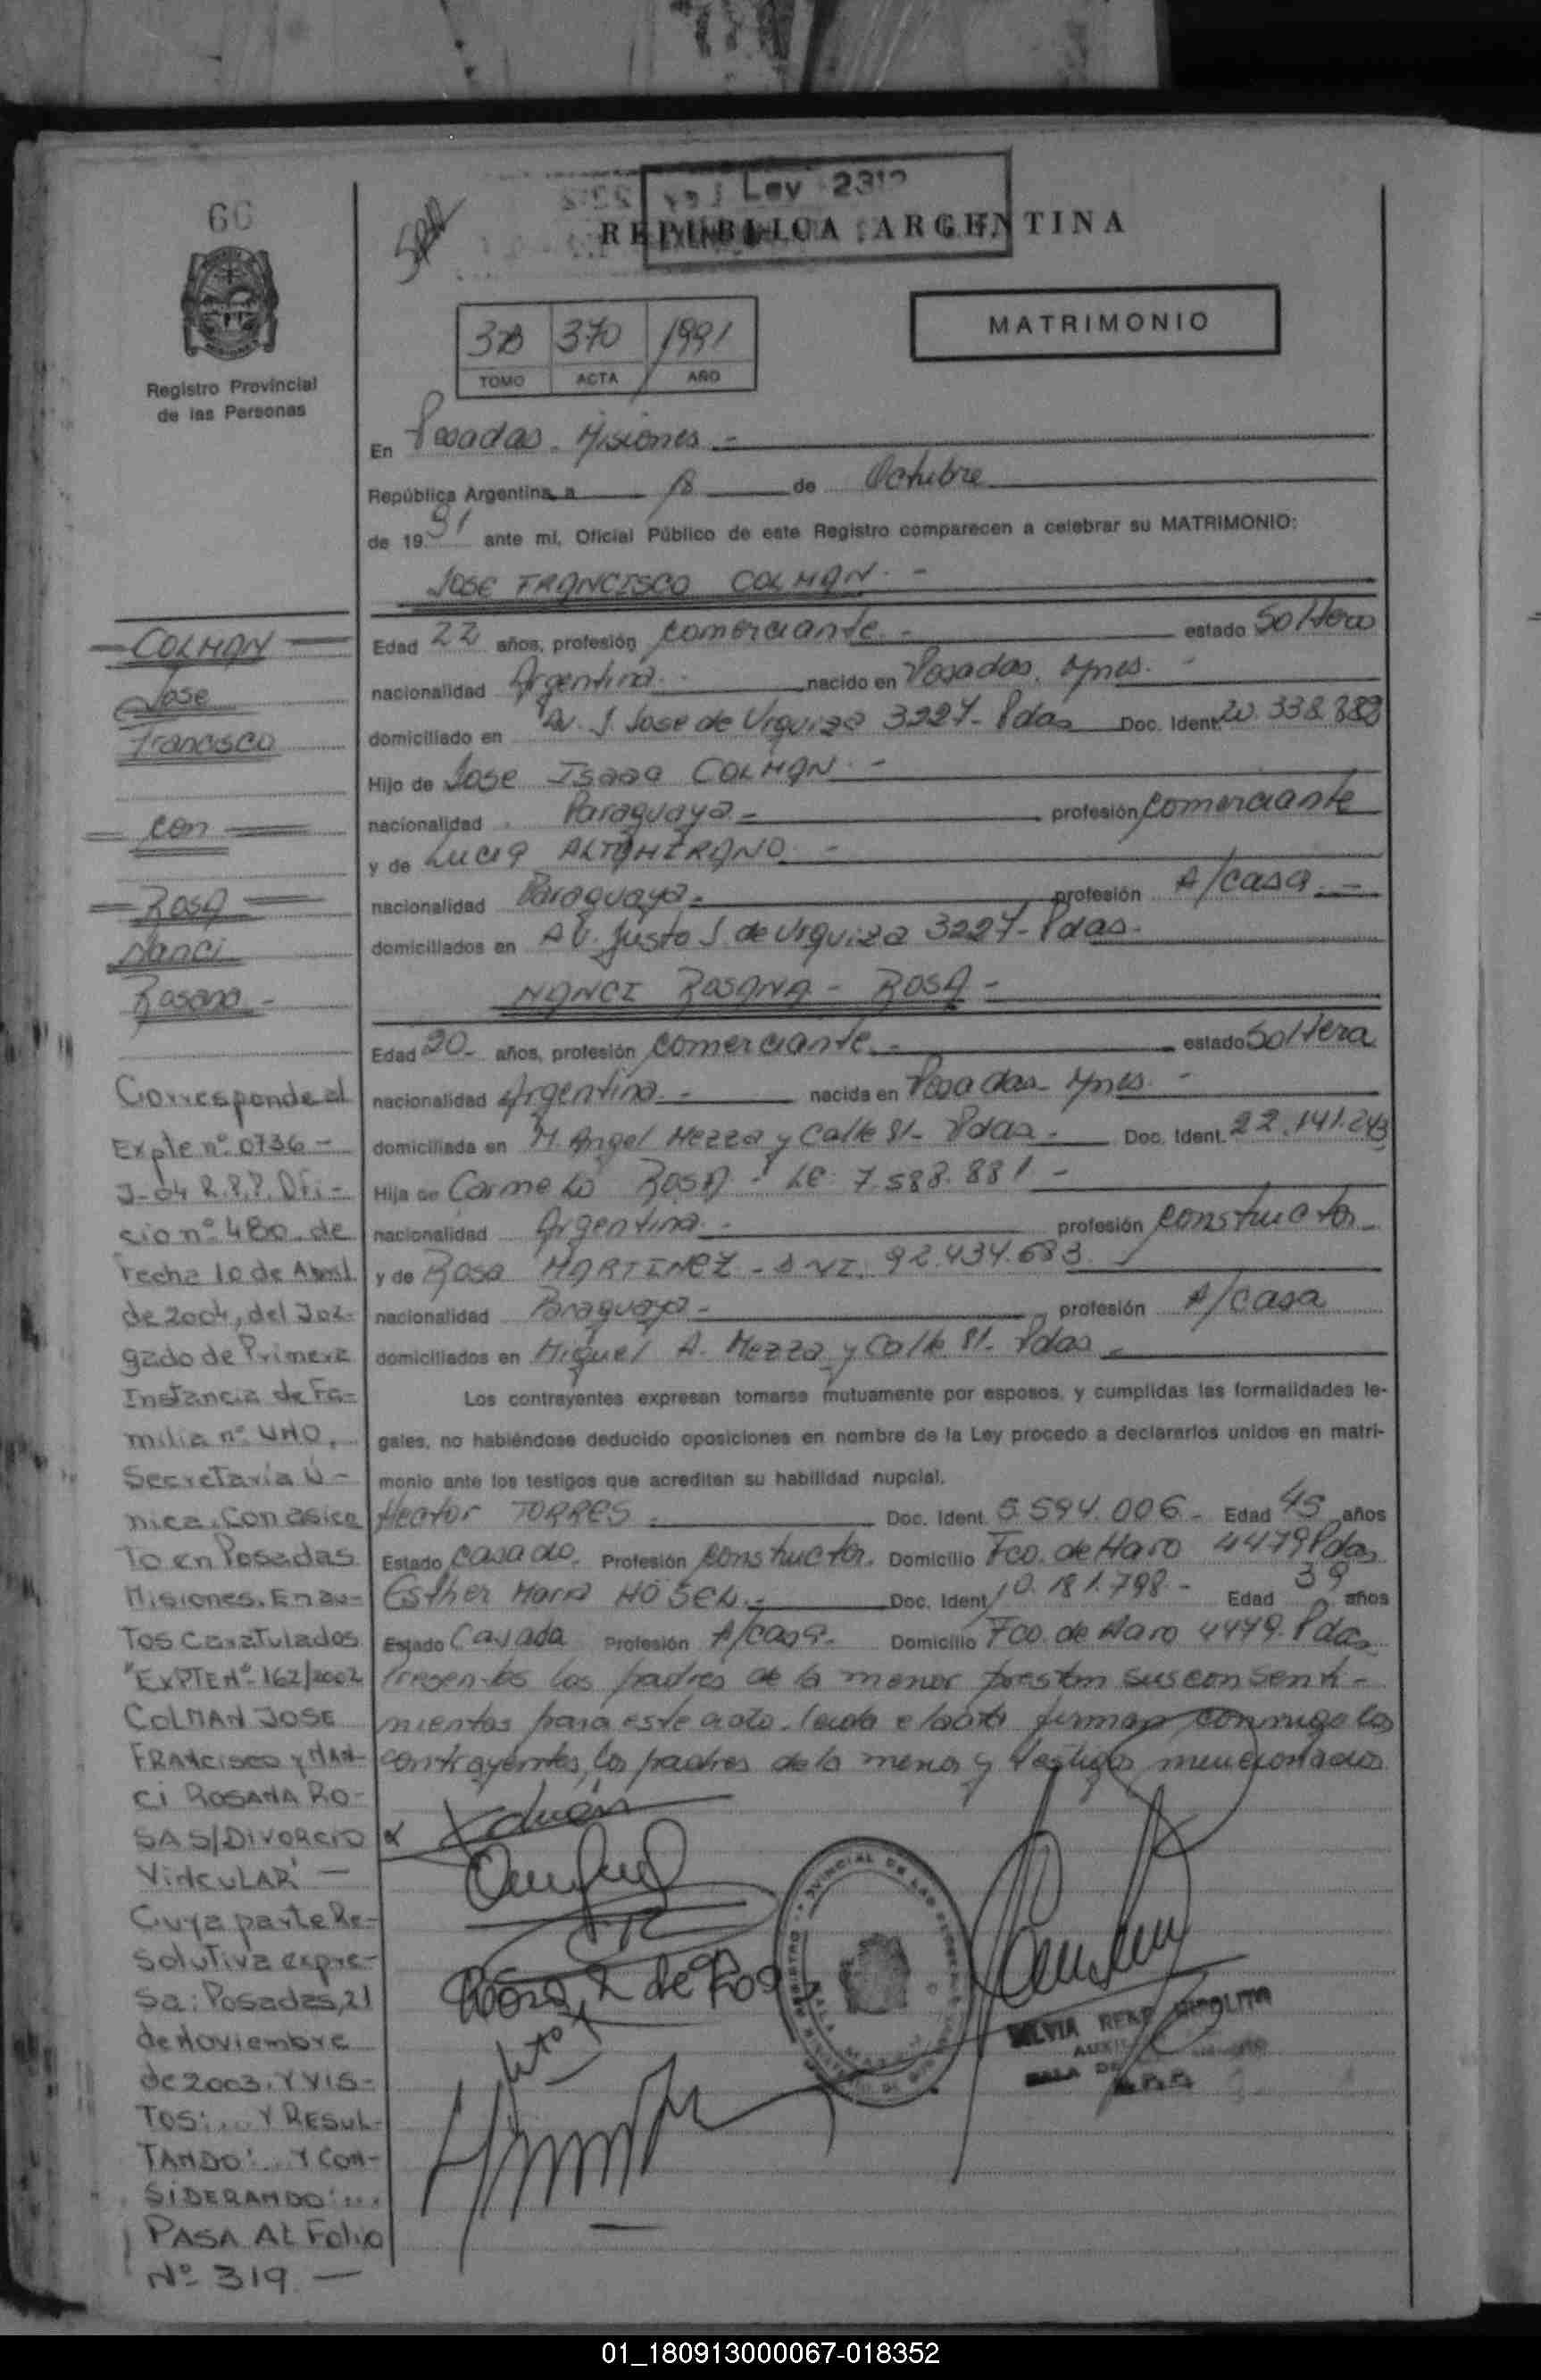 66
Registro Provincial
de las Personas
Ley 2312
REPUBLICA ARGENTINA
MATRIMONIO
370 1991
TOMO ACTA AÑO
En Posadas - Misiones -
República Argentina, a de Octubre
de 1991 ante mí, Oficial Público de este Registro comparecen a celebrar su MATRIMONIO:
JOSE FRANCISCO COLMAN -
Edad 22 años, profesión comerciante - estado Soltero
nacionalidad Argentina - nacido en Posadas, Mnes. -
domiciliado en Av. J. Jose de Urquiza 3227 - Pdas Doc. Ident. 20.338.
Hijo de Jose Isaac COLMAN -
nacionalidad Paraguaya - profesión comerciante
y de Lucia ALTAMIRANO -
nacionalidad Paraguaya - profesión A/casa -
domiciliados en Av. Justo J. de Urquiza 3227 - Pdas -
NANCI ROSANA - ROSA -
Edad 20 - años, profesión comerciante - estado Soltera
nacionalidad Argentina - nacida en Posadas - Mnes -
domiciliada en M. Angel Mezza y Calle 81 - Pdas - Doc. Ident. 22.141.243
Hija de Carmelo ROSA - LE: 7.588.881 -
nacionalidad Argentina - profesión constructor
y de Rosa MARTINEZ - DNI. 92.434.683
nacionalidad Paraguaya - profesión A/casa
domiciliados en Miguel A. Mezza y Calle 81 - Pdas -
Los contrayentes expresan tomarse mutuamente por esposos, y cumplidas las formalidades le-
gales, no habiéndose deducido oposiciones en nombre de la Ley procedo a declararlos unidos en matri-
monio ante los testigos que acreditan su habilidad nupcial.
Hector TORRES - Doc. Ident. 5.594.006 - Edad 45 años
Estado casado Profesión constructor. Domicilio Fco. de Haro 4479 Pdas
Esther Maria Doc. Ident. 10.181.798 - Edad 39 años
Estado Casada Profesión A/casa - Domicilio Fco. de Haro 4479. Pdas
Presentes los padres de la menor prestan sus consenti-
mientos para este acto. leida el acta firman conmigo los
contrayentes, los padres de la menor y testigos mencionados
SILVIA HIPOLITO
SALA DE
COLMAN
Jose
Francisco
con
ROSA
Nanci
Rosana -
Corresponde al
Expte nº 0736 -
J-04 R.P.P. Ofi-
cio nº 480. de
fecha 10 de Abril
de 2004, del Juz-
gado de Primera
Instancia de Fa-
milia nº UNO,
Secretaría Ú-
nica. Con asien
to en Posadas
Misiones. En au-
tos Caratulados
"EXPTE Nº 162/2002
COLMAN JOSE
FRANCISCO y NAN-
CI ROSANA RO-
SA S/DIVORCIO
VINCULAR" -
Cuya parte Re-
solutiva expre-
sa: Posadas, 21
de Noviembre
de 2003. Y VIS-
TOS:... Y RESUL-
TANDO:... Y CON-
SIDERANDO:...
PASA AL Folio
Nº 319 -
01_180913000067-018352